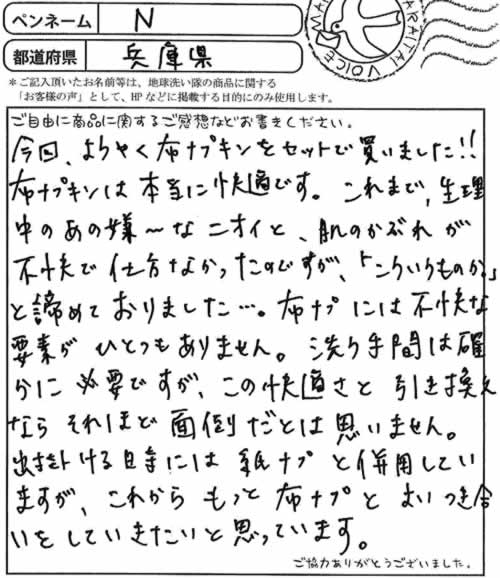 ペンネーム N
都道府県 兵庫県
ARAITAI VOICE
＊ご記入頂いたお名前等は、地球洗い隊の商品に関する
「お客様の声」として、HPなどに掲載する目的にのみ使用します。
ご自由に商品に関するご感想などお書きください。
今回、ようやく布ナプキンをセットで買いました!!
布ナプキンは本当に快適です。これまで、生理
中のあの嫌〜なニオイと、肌のかぶれが
不快で仕方なかったのですが、「こういうものか」
と諦めておりました…。布ナプには不快な
要素がひとつもありません。洗う手間は確
かに必要ですが、この快適さと引き換え
ならそれほど面倒だとは思いません。
出掛ける時には紙ナプと併用してい
ますが、これからもっと布ナプとよいつき合
いをしていきたいと思っています。
ご協力ありがとうございました。